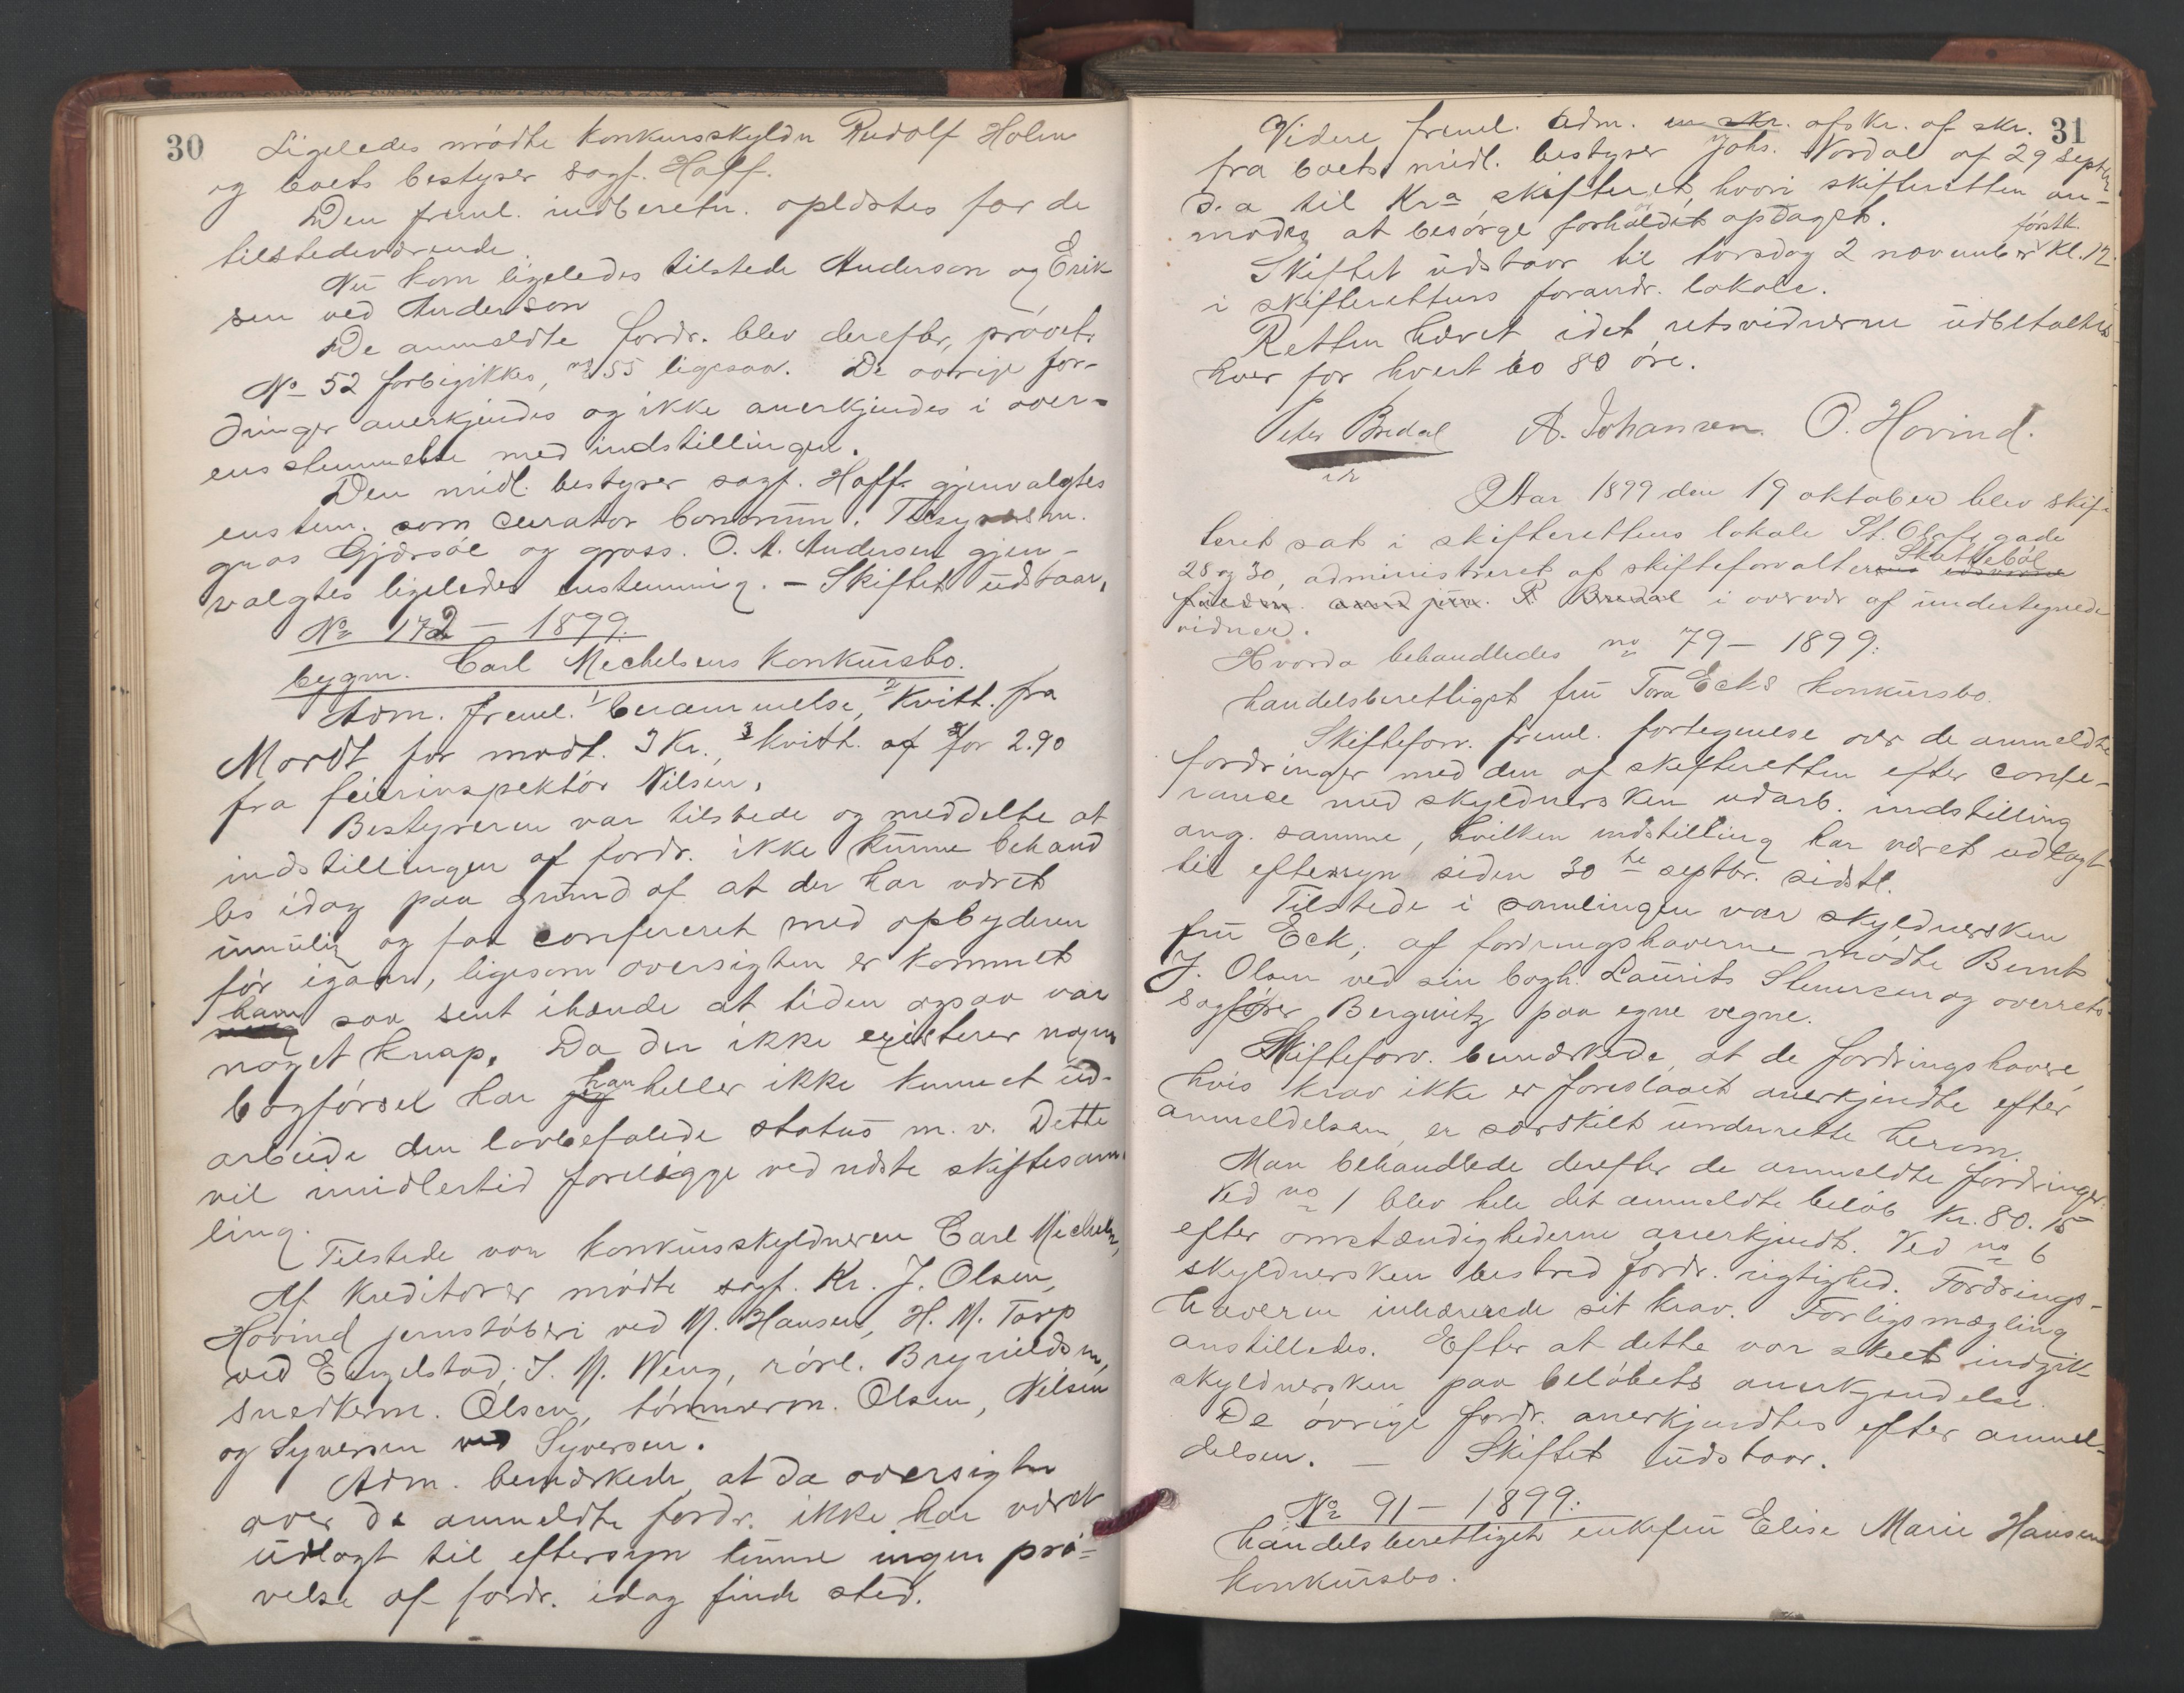 30
Ligeledes mødte konkursskyldn Rudolf Holm
og boets bestyrer sagf. Hoff.
Den freml. indberetn. oplæstes for de
tilstedeværende.
Nu kom ligeledes tilstede Anderson og Erik
sen ved Anderson
De anmeldte fordr. blev derefter prøvet.
No 52 forbigikkes, no 55 ligesaa. De øvrige for-
dringer anerkjendes og ikke anerkjendes i over-
ensstemmelse med indstillingen.
Den midl. bestyrer sagf. Hoff gjenvalgtes
enstem. som curator bonorum. Tilsynsm.
gros Gjersøe og gross. O. A. Andersen gjen-
valgtes ligeledes enstemmig. — Skiftet udstaar.
No 172 — 1899:
bygm. Carl Mechelsens konkursbo.
Adm. freml. 1 berammelse, 2 kvitt. fra
Mordt for modt. 3 Kr., 3 kvitt. for 2.90
fra feierinspektør Nilsen.
Bestyreren var tilstede og meddelte at
indstillingen af fordr. ikke kunne behand
les idag paa grund af at der har været
umulig og faa confereret med opbyderen
før igaar, ligesom oversigten er kommet
ham saa sent ihænde at tiden ogsaa var
noget knap. Da der ikke existerer nogen
bogførsel har han heller ikke kunnet ud-
arbeide den lovbefalede status m. v. Dette
vil imidlertid foreligge ved næste skiftesam
ling.
Tilstede var konkursskyldneren Carl Mechelsen,
Af kreditorer mødte sagf. Kr. J. Olsen,
Hovind jernstøberi ved M. Hansen, H. M. Torp
ved Engelstad, J. M. Weng, rørl. Brynildsen,
snedkerm. Olsen, tømmerm. Olsen, Nilsen
og Syversen ved Syversen.
Adm. bemærkede, at da oversigten
over de anmeldte fordr. ikke har været
udlagt til eftersyn kunne ingen prø-
velse af fordr. idag finde sted.
31
Videre freml. Adm. afskr. af skr.
fra boets midl. bestyrer Johs. Nordal af 29 septbr
d. a til Kra skifteret, hvori skifteretten an-
modes at besørge forholdet opdaget.
Skiftet udstaar til torsdag 2 november førstk. kl. 12
i skifterettens forandr. lokale.
Retten hævet idet retsvidnerne udbetaltes
hver for hvert bo 80 øre.
Peter Bredal A. Johansen. O. Hovind.
Aar 1899 den 19 oktober blev skif-
teret sat i skifterettens lokale St. Olafs gade
28 og 30, administreret af skifteforvalter Skattebøl
i overvær af undertegnede
vidner.
Hvorda behandledes no 79 — 1899:
handelsberettiget fru Tora Ecks konkursbo.
Skifteforv. freml. fortegnelse over de anmeldte
fordringer med den af skifteretten efter confe-
rance med skyldnersken udarb. indstilling
ang. samme, hvilken indstilling har været udlagt
til eftersyn siden 30te septbr. sidstl.
Tilstede i samlingen var skyldnersken
fru Eck; af fordringshaverne mødte Bernt
J. Olsen ved sin bogh. Laurits Stenersen og overrets-
sagfører Bergwitz paa egne vegne.
Skifteforv. bemærkede, at de fordringshavere,
hvis krav ikke er foreslaaet anerkjendte efter
anmeldelsen, er særskilt underrette herom.
Man behandlede derefter de anmeldte fordringer:
Ved no 1 blev hele det anmeldte beløb kr. 80. 15
efter omstændighederne anerkjendt. Ved no 6
skyldnersken bestred fordr. rigtighed. Fordrings-
haveren inhærerede sit krav. Forligsmægling
anstilledes. Efter at dette var skeet indgik
skyldnersken paa beløbets anerkjendelse.
De øvrige fordr. anerkjendtes efter anmel-
delsen. — Skiftet udstaar.
No 91 — 1899:
handelsberettiget enkefru Elise Marie Hansens
konkursbo.